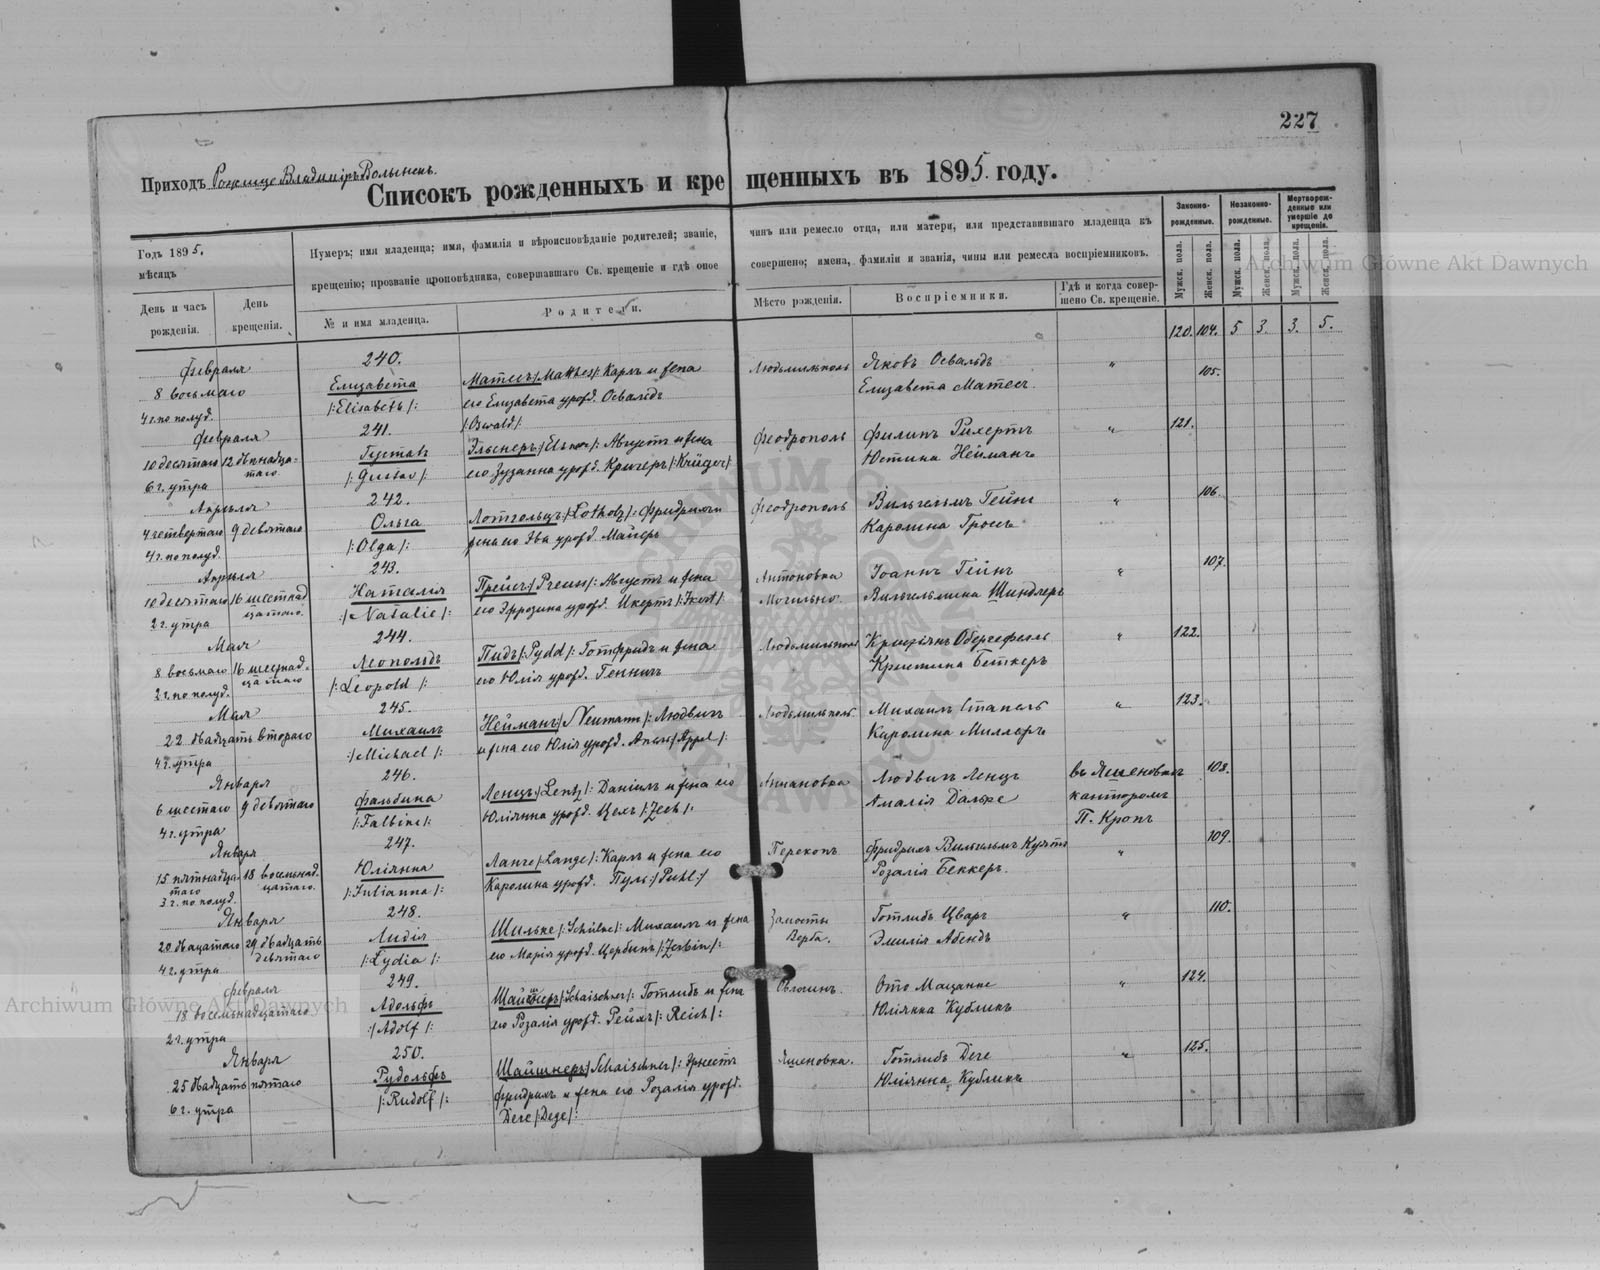 227
Приходъ Рожище Владиміръ Волынск.
Списокъ рожденныхъ и крещенныхъ въ 1895. году.
Годъ 1895.
мѣсяцъ
День и часъ рожденія.
День крещенія.
Нумеръ; имя младенца; имя, фамилія и вѣроисповѣданіе родителей; званіе, чинъ или ремесло отца, или матери, или представившаго младенца къ
крещенію; прозваніе проповѣдника, совершавшаго Св. крещеніе и гдѣ оное совершено; имена, фамиліи и званія, чины или ремесла воспріемниковъ.
№ и имя младенца.
Родители.
Мѣсто рожденія.
Воспріемники.
Гдѣ и когда совершено Св. крещеніе.
Законнорожденные.
Незаконнорожденные.
Мертворожденные или умершіе до крещенія.
Мужск. пола.
Женск. пола.
Мужск. пола.
Женск. пола.
Мужск. пола.
Женск. пола.
120. 104. 5 3. 3. 5.
Февраля
8 восьмаго
4 г. по полуд.
240.
Елизавета
/:Elisabeth/:
Матесъ/:Matthes/: Карлъ и жена
его Елизавета урожд. Освальдъ
/:Oswald/:
Людмильполь
Яковъ Освальдъ
Елизавета Матесъ
"
105.
Февраля
10 десятаго 12 двѣнадцатаго
6 г. утра
241.
Густавъ
/:Gustav/:
Эльснеръ/:Elsner/: Августъ и жена
его Зузанна урожд. Кригеръ/:Krüger/
Феодрополь
Филипъ Рихертъ
Юстина Нейманъ
"
121.
Апрѣля
4 четвертаго 9 девятаго
4 г. по полуд.
242.
Ольга
/:Olga/:
Лотгольцъ/:Lotholz/: Фридрихъ и
жена его Эва урожд. Майеръ
Феодрополь
Вильгельмъ Гейн
Каролина Гросъ
"
106.
Апрѣля
10 десятаго 16 шестнадцатаго
2 г. утра
243.
Наталія
:/Natalie/:
Прейсъ/:Preuss/: Августъ и жена
его Эфрозина урожд. Икертъ/:Ikert/:
Антоновка
Могильно.
Іоаннъ Гейнъ
Вильгельмина Шиндлеръ
"
107.
Мая
8 восьмаго 16 шестнадцатаго
2 г. по полуд.
244.
Леопольдъ
/:Leopold/:
Пидъ/:Pydd/: Готфридъ и жена
его Юлія урожд. Геннигъ
Людмильполь
Христіянъ Обергефель
Христина Беткеръ
"
122.
Мая
22 двадцать втораго
4 г. утра
245.
Михаилъ
:/Michael/:
Нейманъ/:Neumann/: Людвигъ
и жена его Юлія урожд. Апель/:Appel/:
Людмильполь.
Михаилъ Стапель
Каролина Миллеръ
"
123.
Января
6 шестаго 9 девятаго
4 г. утра
246.
Фальбина
/:Falbine/:
Ленцъ/:Lentz/: Даніилъ и жена его
Юліянна урожд. Цехъ/:Zech/:
Аннановка
Людвигъ Ленцъ
Амалія Дальке
въ Яшеновкѣ
канторомъ
П. Кропъ
108.
Января
15 пятнадцатаго 18 восемьнадцатаго.
3 г. по полуд.
247.
Юліянна
/:Julianna/:
Ланге/:Lange/: Карлъ и жена его
Каролина урожд. Пуль:/Puhl:/
Перекопъ
Фридрихъ Вильгельмъ
Розалія Беккеръ.
"
109.
Января
20 двацатаго 29 двадцать девятаго
4 г. утра
248.
Лидія
/:Lydia/:
Шильке/:Schülke/: Михаилъ и жена
его Марія урожд. Цербинъ/:Zerbin/:
Замосты
Верба.
Готлибъ Цваръ
Эмилія Абендъ
"
110.
Февраля
18 восемьнадцатаго
2 г. утра
249.
Адольфъ
:/Adolf/:
Шайшнеръ/:Schaischner/: Готлибъ и жена
его Розалія урожд. Рейхъ/:Reich/:
Овлочинъ.
Ото Мацанке
Юліянна Кубликъ
"
124.
Января
25 двадцать пятаго
6 г. утра
250.
Рудольфъ
/:Rudolf/:
Шайшнеръ/:Schaischner/: Эрнестъ
Фридрихъ и жена его Розалія урожд.
Деге/:Dege/:
Яшеновка.
Готлибъ Деге
Юліянна Кубликъ
"
125.
Archiwum Główne Akt Dawnych
Archiwum Główne Akt Dawnych